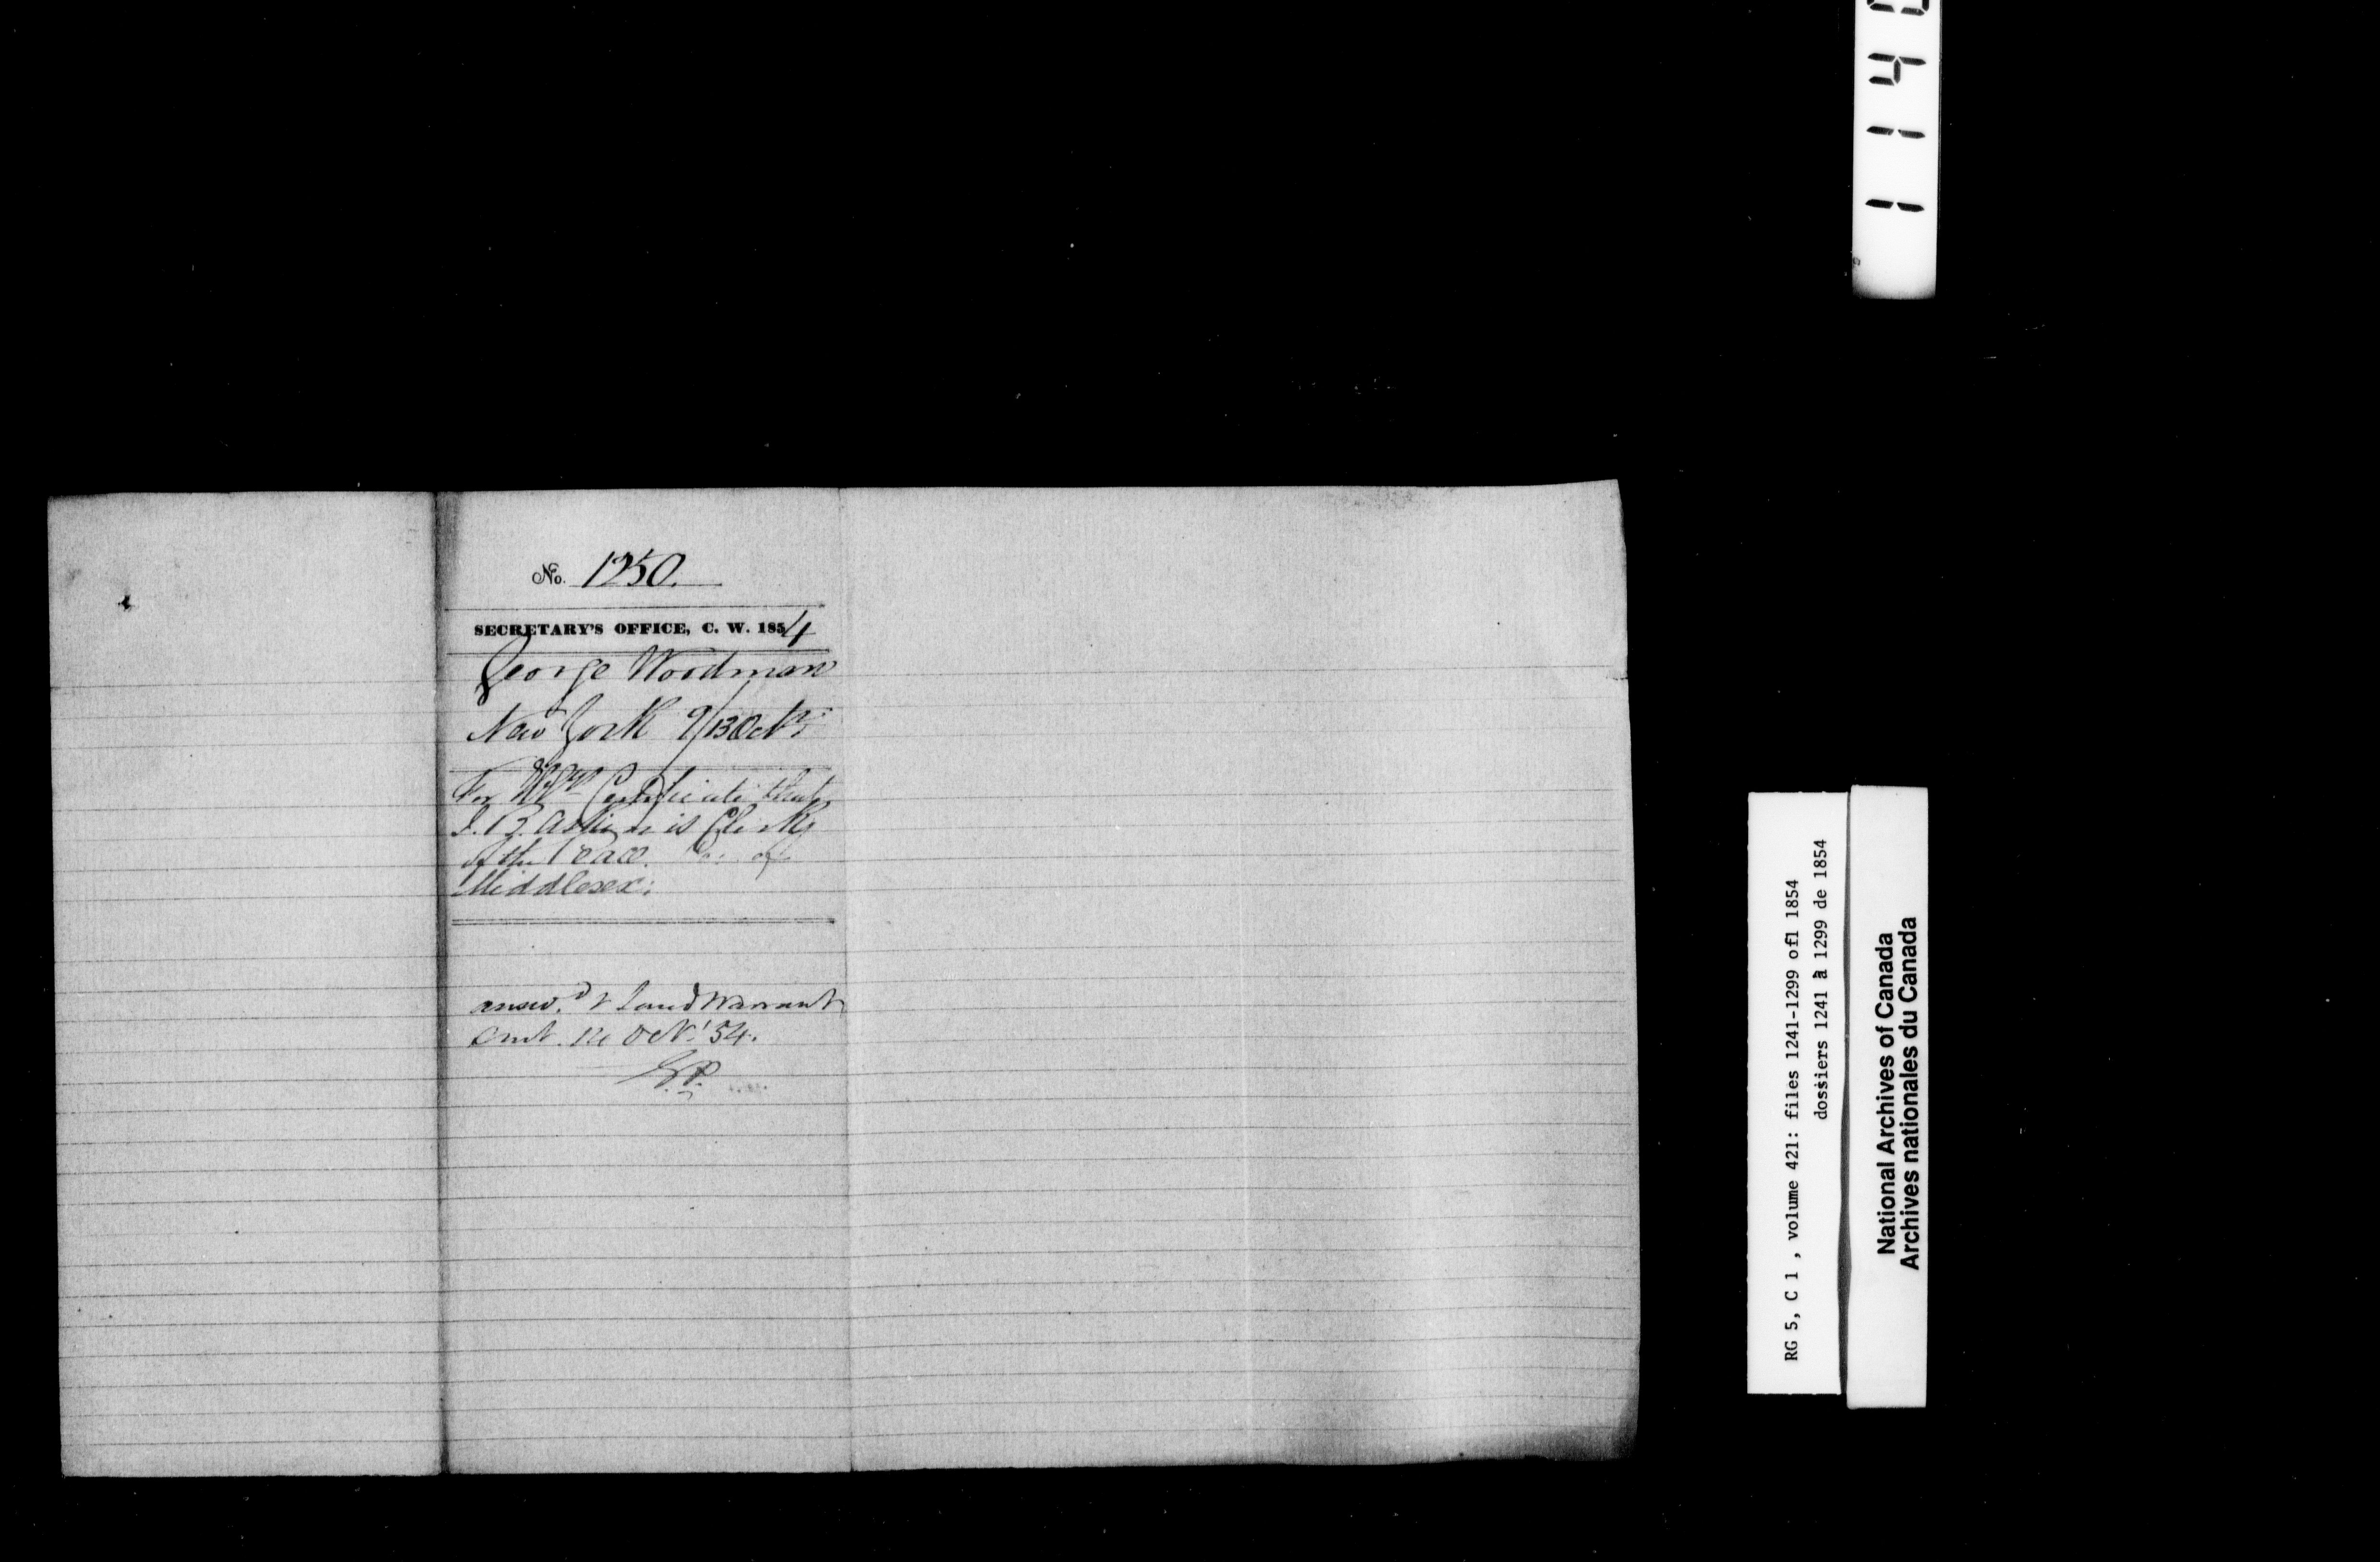 No. 1250.
SECRETARY'S OFFICE, C. W. 1854
George Woodman
New York 9/13 Oct.
For Certificate that
J. B. Askin is Clerk
of the Peace. Co: of
Middlesex:
answ.d & Land Warrant
Oct! 54.
1 1 4 0
RG 5, C 1 , volume 421: files 1241-1299 ofl 1854
dossiers 1241 à 1299 de 1854
National Archives of Canada
Archives nationales du Canada